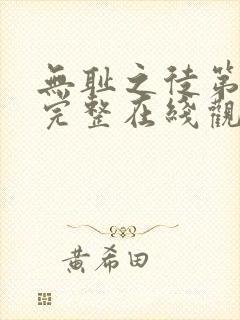 無耻之徒第
完整在綫觀
黄希田